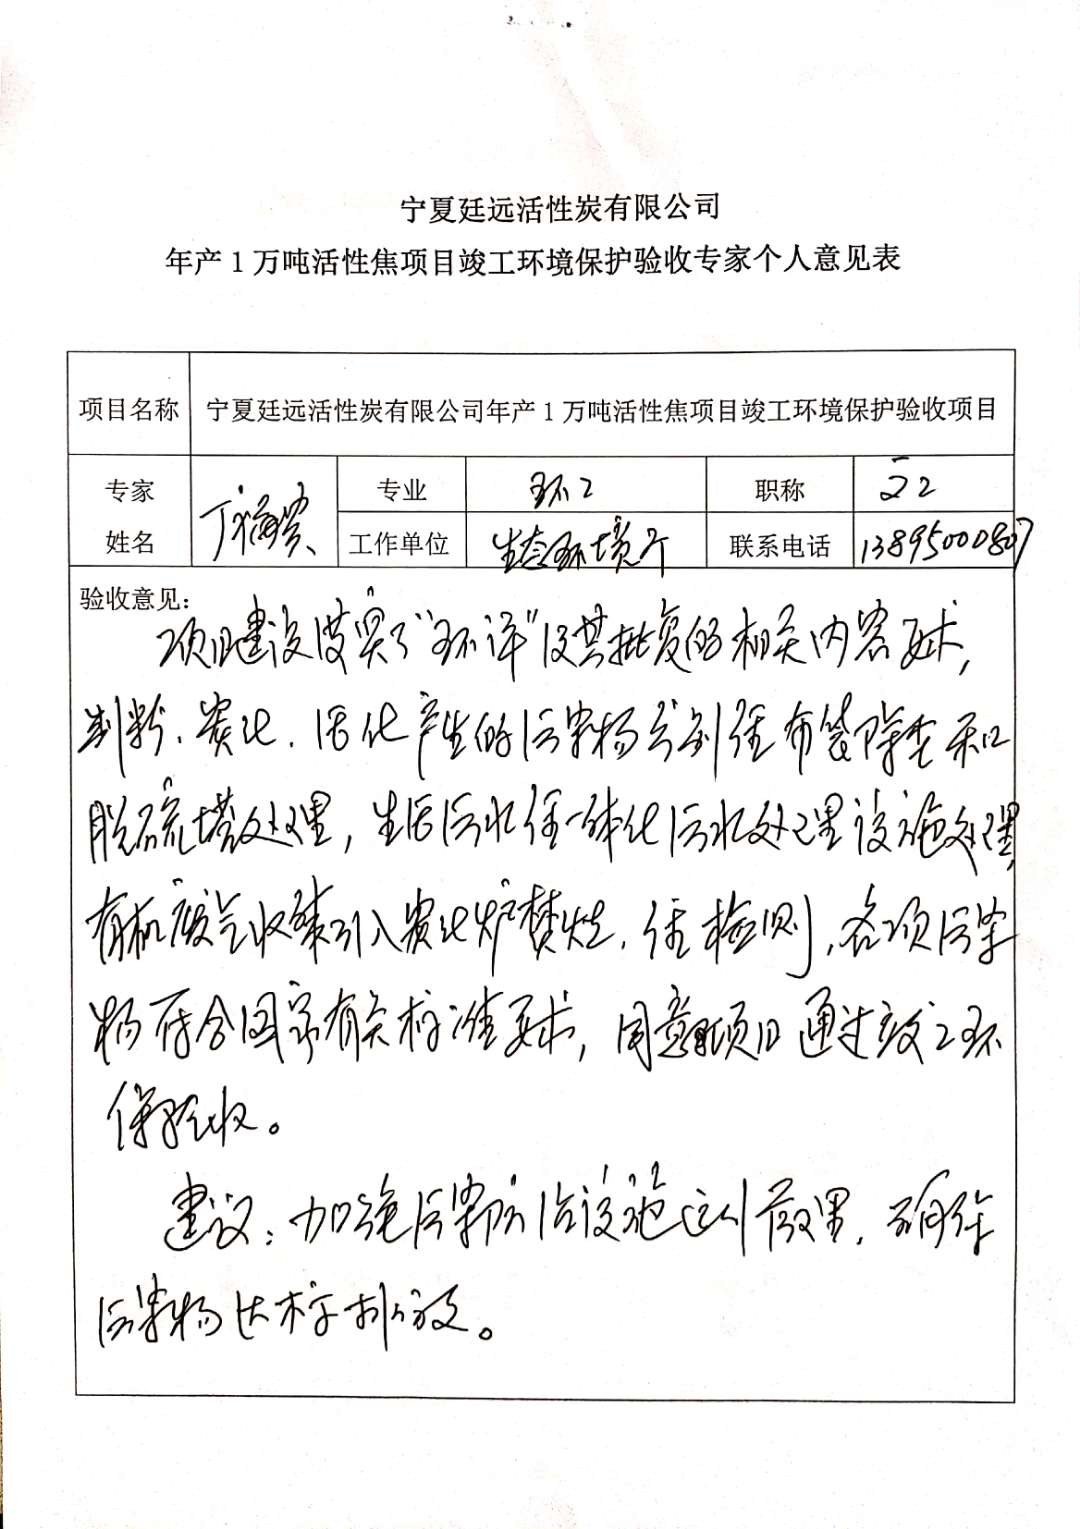 宁夏廷远活性炭有限公司
年产1万吨活性焦项目竣工环境保护验收专家个人意见表
项目名称 宁夏廷远活性炭有限公司年产1万吨活性焦项目竣工环境保护验收项目
专家姓名 专业 环工 职称 高工
工作单位 生态环境厅 联系电话
验收意见：
项目建设落实了“环评”及其批复的相关内容要求，
制粉、炭化、活化产生的污染物分别经布袋除尘和
脱硫塔处理，生活污水经一体化污水处理设施处理，
有机废气收集引入炭化炉焚烧，经检测，各项污染
物符合国家有关标准要求，同意项目通过竣工环
保验收。
建议：加强污染防治设施运行管理，确保
污染物达标排放。